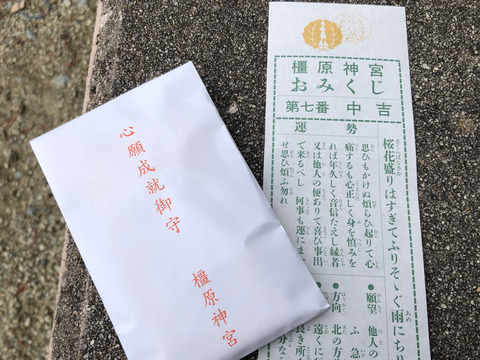 心願成就御守
橿原神宮
橿原神宮
おみくじ
第七番 中吉
運勢
桜花盛りはすぎてふりそゝぐ雨にち
思ひもかけぬ煩らひ起りて心
痛するも心正しく身を慎みを
れば年久しく音信たえし縁者
又は他人の便ありて喜び事出
で来るべし 何事も運にま
せ思ひ煩ふ勿れ
●願望 他人の
●方向 北の方